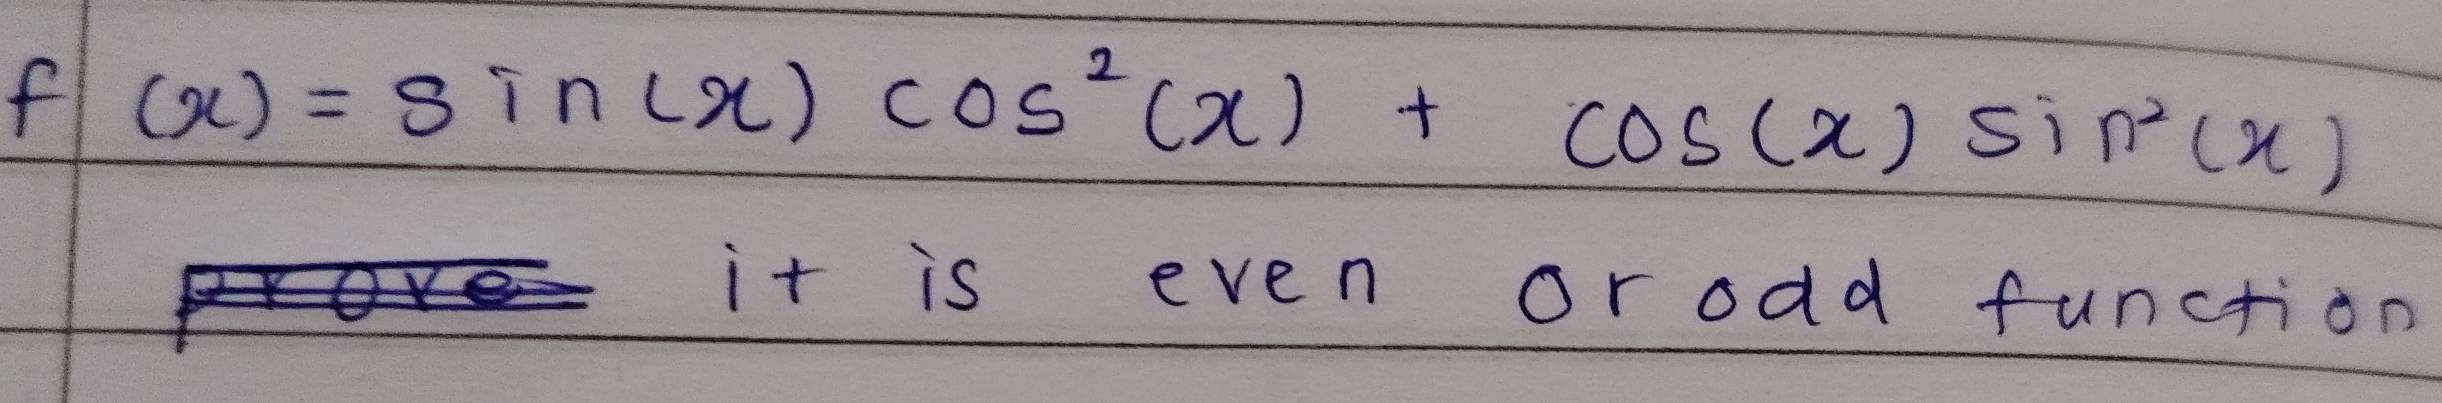 f(x) = sin(x) cos²(x) + cos(x) sin²(x)
it is even or odd function